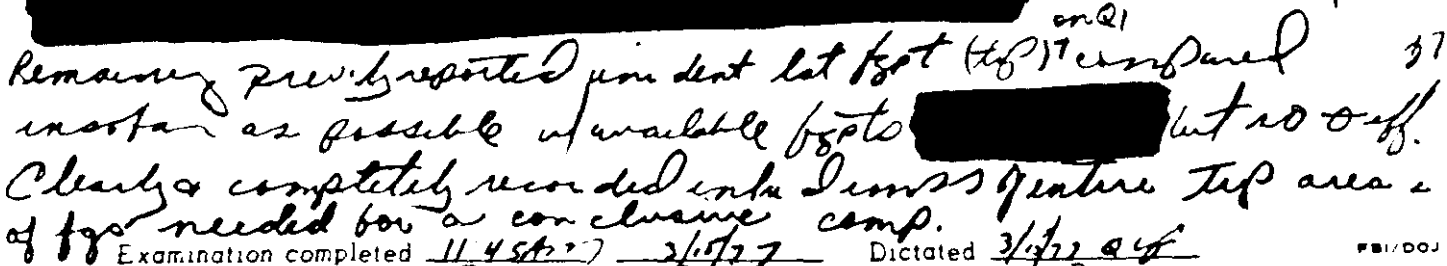 on Q1
Remaining prev'ly reported uniden't lat fgpt (tip) compared 37
insofar as possible w/available fgpts but no eff.
Clearly & completely recorded inked imps of entire tip area
of fgs needed for a conclusive comp.
Examination completed 11 45 3/15/77 Dictated 3/15/77 FBI/DOJ